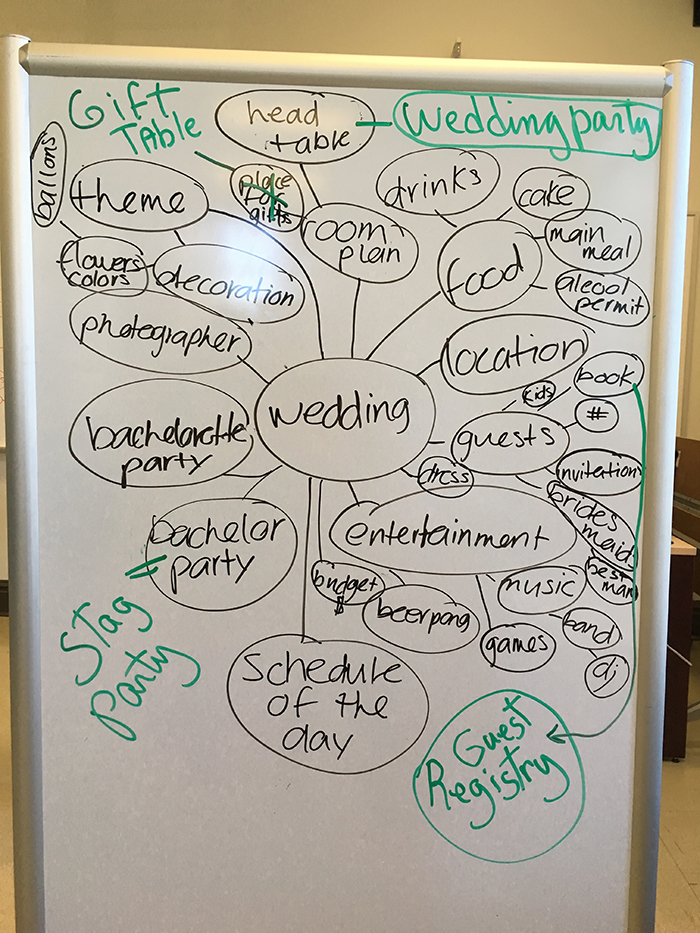 Gift
Table
head
table
Wedding party
ballons
theme
place
for
gifts
room
plan
drinks
cake
main
meal
food
alcool
permit
flowers
colors
decoration
photographer
location
book
kids
#
wedding
guests
bachelorette
party
dress
invitation
brides
maids
best
man
entertainment
bachelor
party
=
Stag
Party
budget
$
beerpong
music
games
band
dj
Schedule
of the
day
Guest
Registry